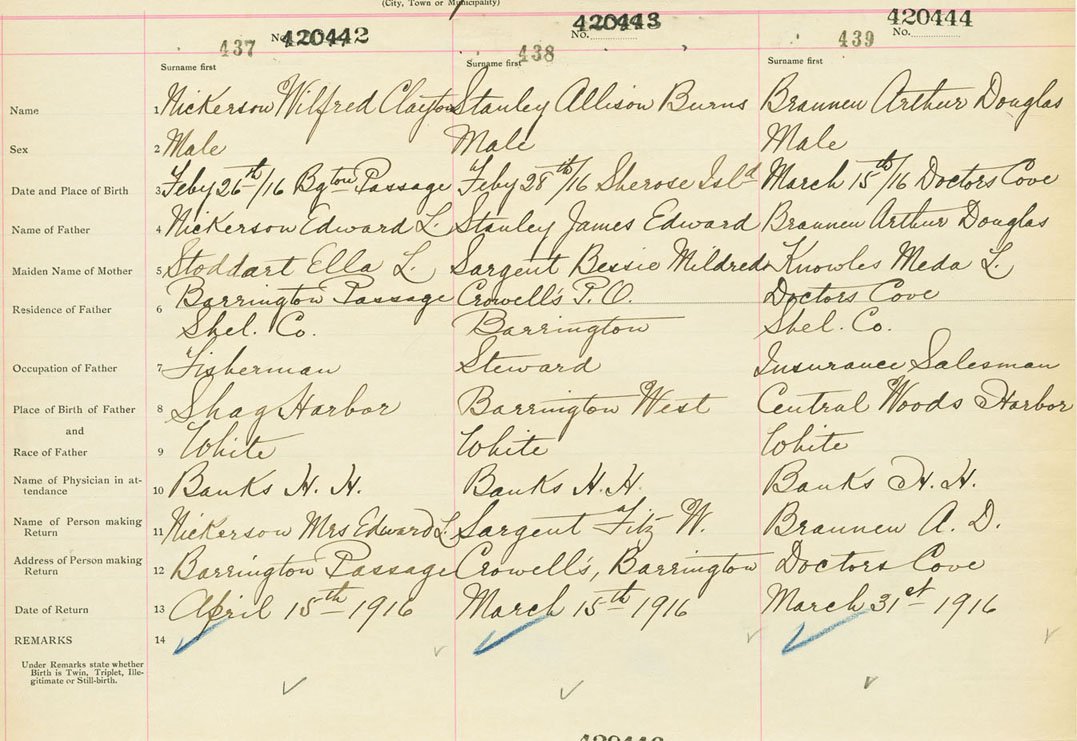 (City, Town or Municipality)
437 No. 420442
438 No. 420443
439 No. 420444
Surname first Surname first Surname first
Name 1 Nickerson Wilfred Clayton Stanley Allison Burns Brannen Arthur Douglas
Sex 2 Male Male Male
Date and Place of Birth 3 Feby 26th/16 Bgton Passage Feby 28th/16 Sherose Isld March 15th/16 Doctors Cove
Name of Father 4 Nickerson Edward L. Stanley James Edward Brannen Arthur Douglas
Maiden Name of Mother 5 Stoddart Ella L. Sargent Bessie Mildred Knowles Meda L.
Residence of Father 6 Barrington Passage Crowell's P.O. Doctors Cove
Shel. Co. Barrington Shel. Co.
Occupation of Father 7 Fisherman Steward Insurance Salesman
Place of Birth of Father 8 Shag Harbor Barrington West Central Woods Harbor
and
Race of Father 9 White White White
Name of Physician in at-
tendance 10 Banks H. H. Banks H. H. Banks H. H.
Name of Person making
Return 11 Nickerson Mrs Edward L. Sargent Fitz W. Brannen A. D.
Address of Person making
Return 12 Barrington Passage Crowell's, Barrington Doctors Cove
Date of Return 13 April 15th 1916 March 15th 1916 March 31st 1916
REMARKS 14
Under Remarks state whether
Birth is Twin, Triplet, Ille-
gitimate or Still-birth.